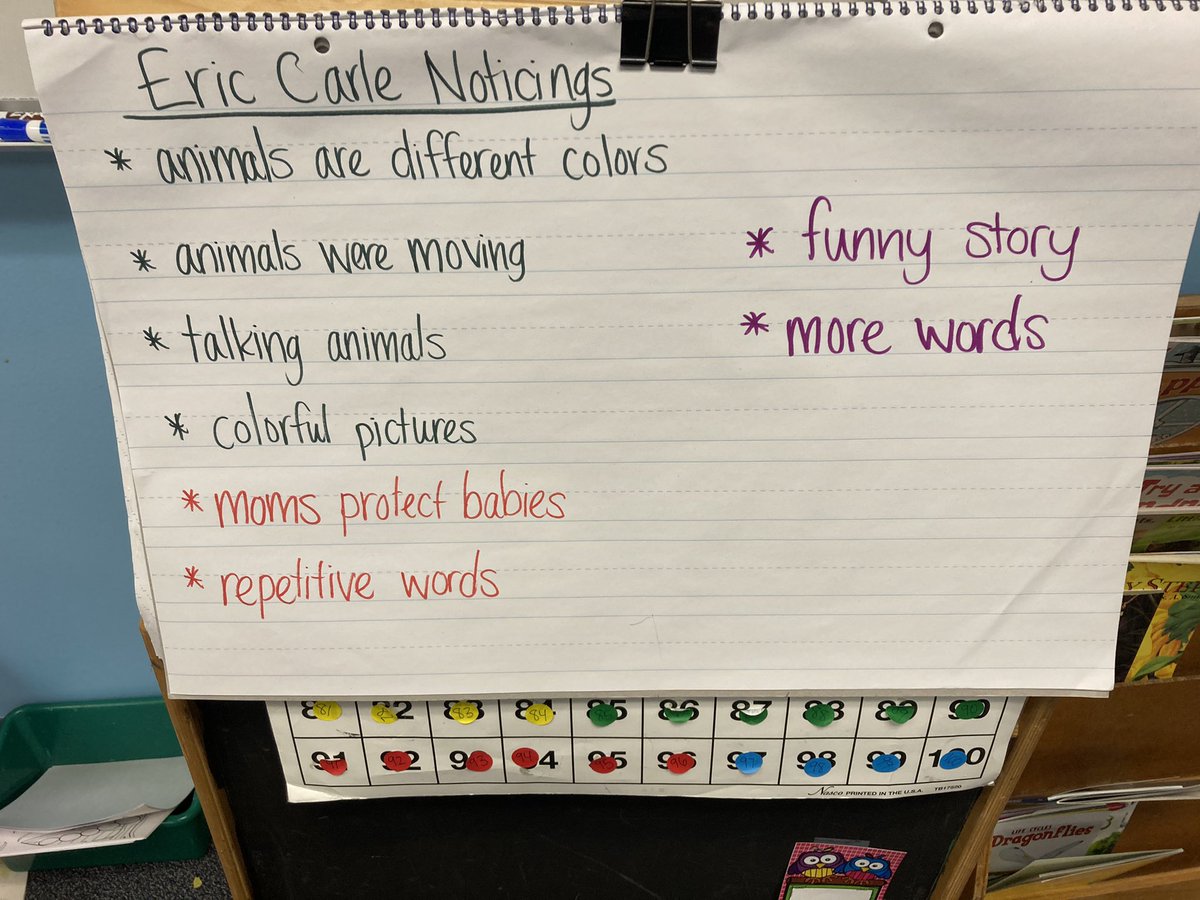 Eric Carle Noticings
* animals are different colors
* animals were moving
* talking animals
* colorful pictures
* moms protect babies
* repetitive words
* funny story
* more words
81 82 83 84 85 86 87 88 89 90
91 92 93 94 95 96 97 98 99 100
Nasco PRINTED IN THE U.S.A. TB17520
LIFE CYCLES
Dragonflies
3